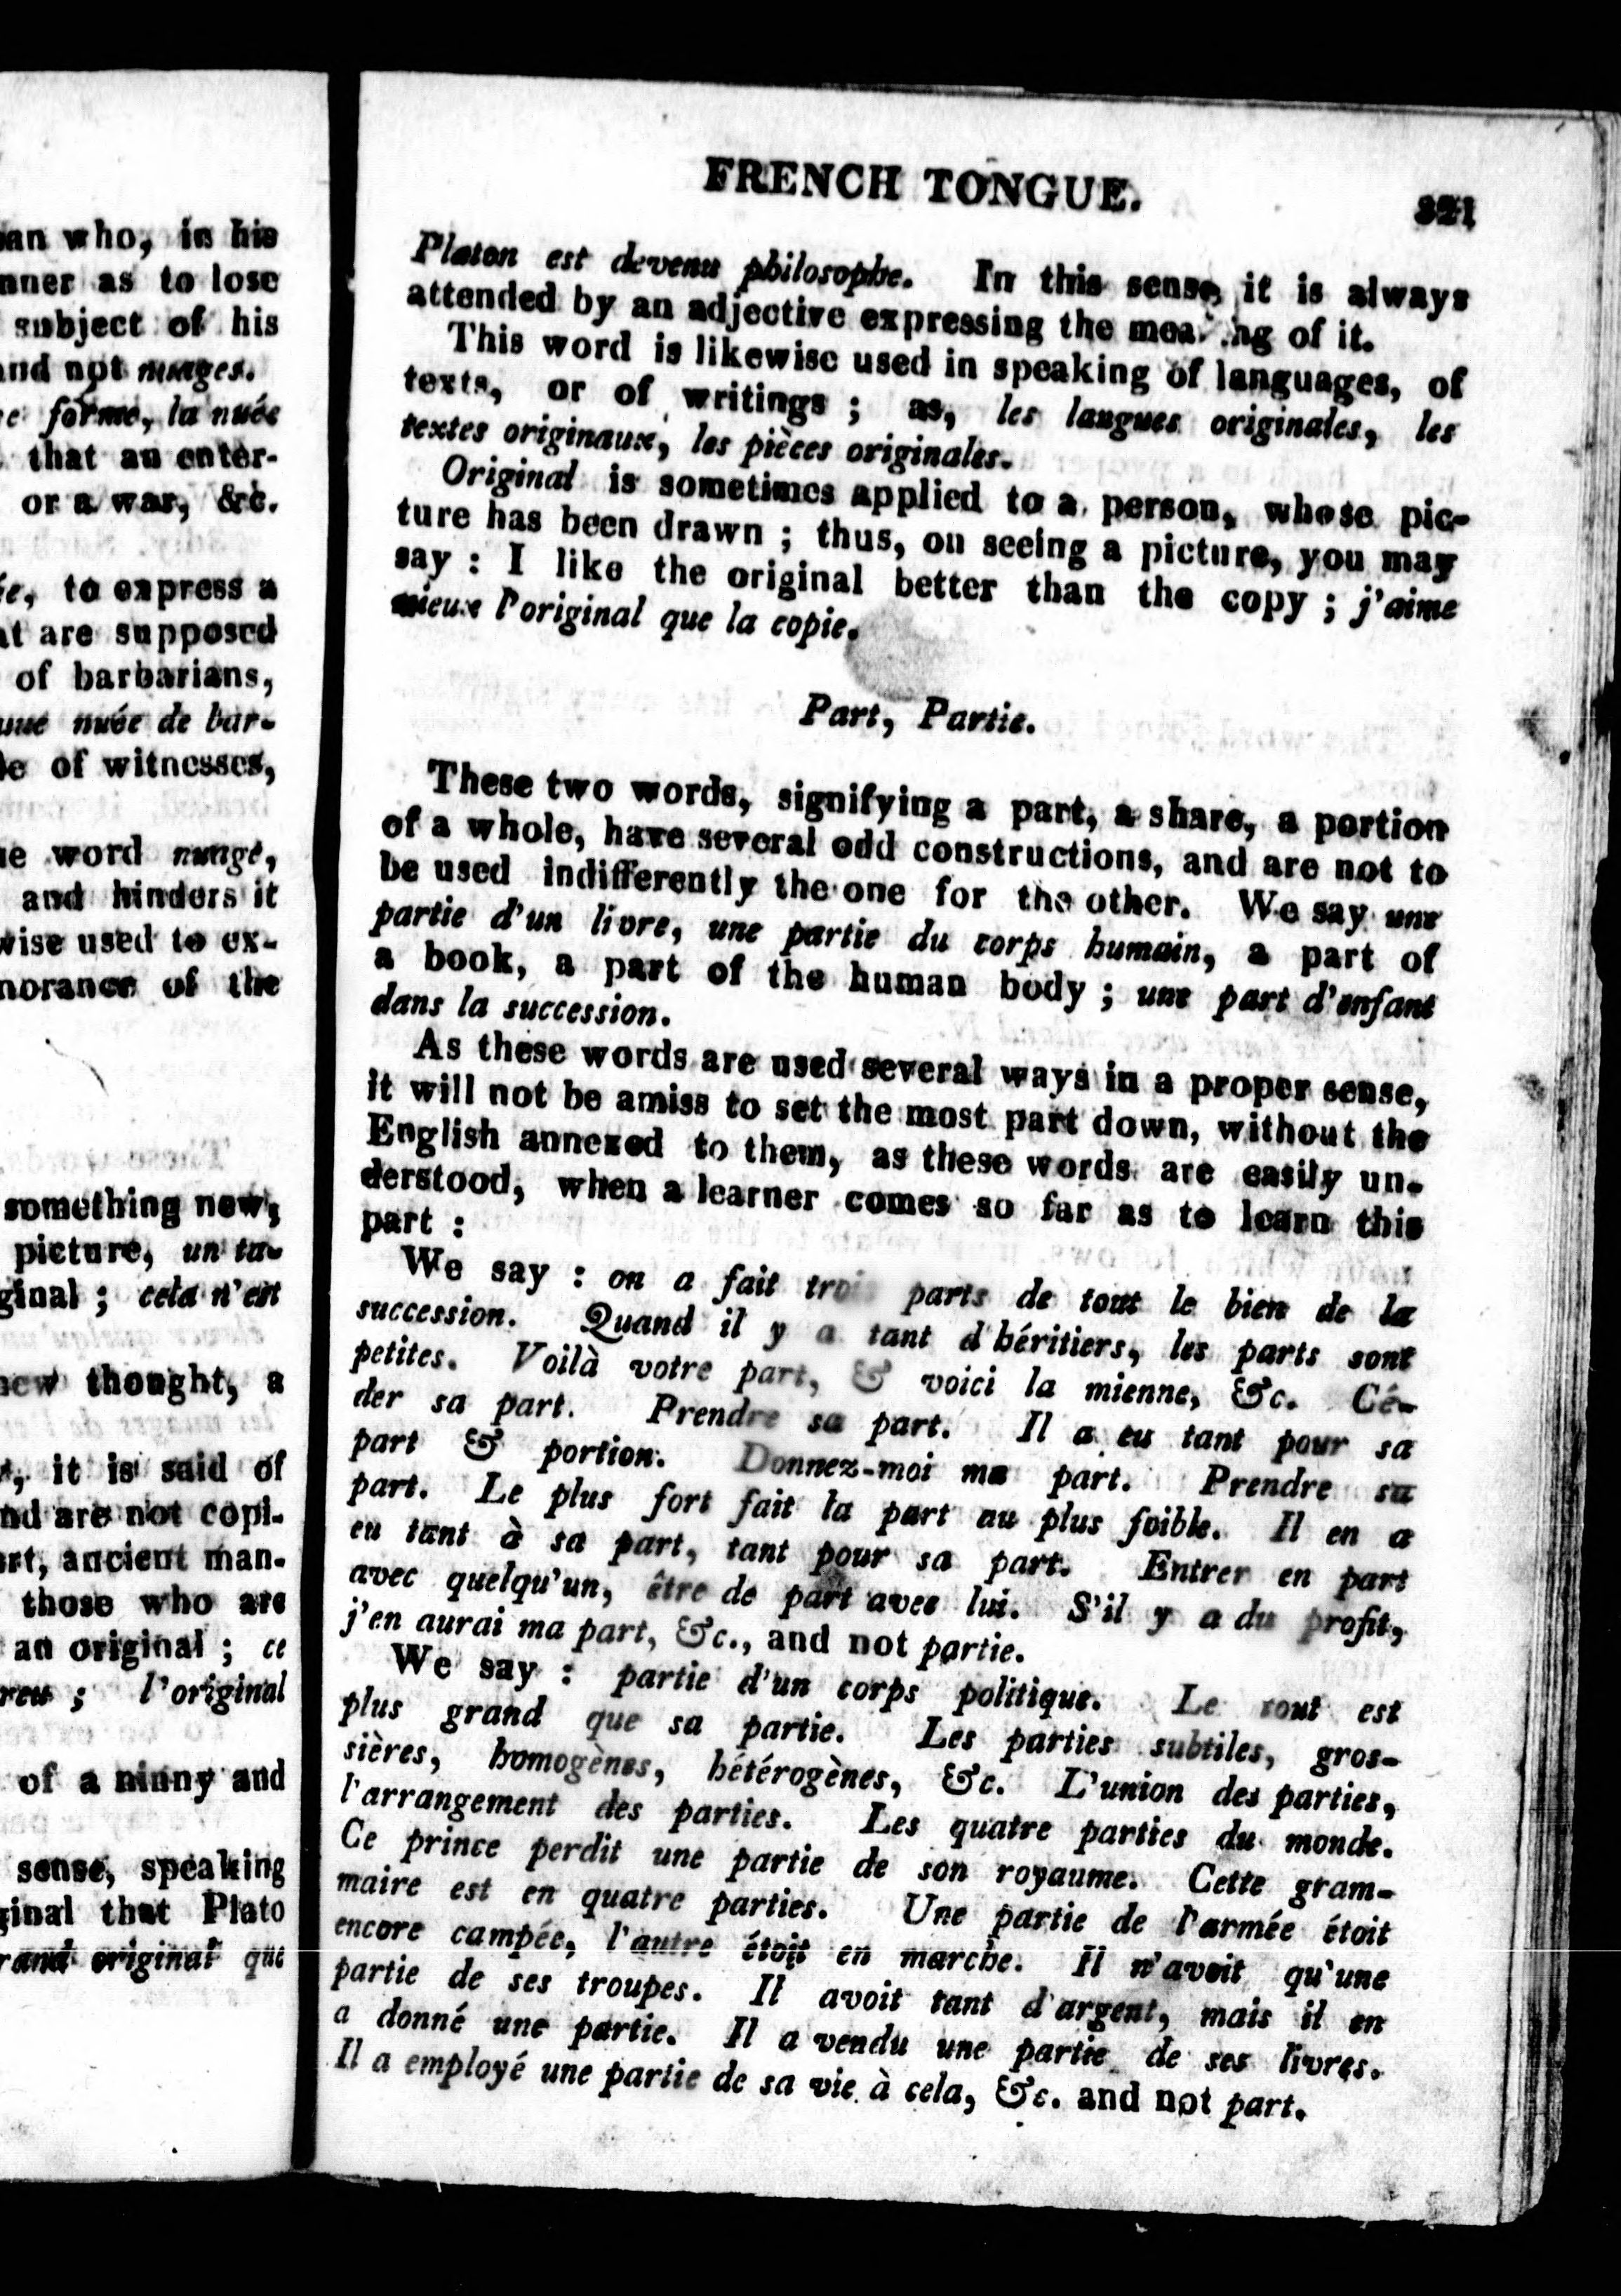 an who, in his
nner as to lose
subject of his
and not nuages.
forme, la nuée
that an enter-
or a war, &c.
to express a
at are supposed
of barbarians,
nuée de bar-
of witnesses,
word nuage,
and hinders it
wise used to ex-
norance of the
something new;
picture, un ta-
ginal ; cela n'est
new thought, a
it is said of
nd are not copi-
art, ancient man-
those who are
an original ; ce
l'original
of a ninny and
sense, speaking
ginal that Plato
rand original que
FRENCH TONGUE. 321
Platon est devenu philosophe. In this sense, it is always
attended by an adjective expressing the of it.
This word is likewise used in speaking of languages, of
texts, or of writings ; as, les langues originales, les
textes originaux, les pièces originales.
Original is sometimes applied to a person, whose pic-
ture has been drawn ; thus, on seeing a picture, you may
say : I like the original better than the copy ; j'aime
mieux l'original que la copie.
Part, Partie.
These two words, signifying a part, a share, a portion
of a whole, have several odd constructions, and are not to
be used indifferently the one for the other. We say une
partie d'un livre, une partie du corps humain, a part of
a book, a part of the human body ; une part d'enfant
dans la succession.
As these words are used several ways in a proper sense,
it will not be amiss to set the most part down, without the
English annexed to them, as these words are easily un-
derstood, when a learner comes so far as to learn this
part :
We say : on a fait trois parts de tout le bien de la
succession. Quand il y a tant d'héritiers, les parts sont
petites. Voilà votre part, & voici la mienne, &c. Cé-
der sa part. Prendre sa part. Il a eu tant pour sa
part & portion. Donnez-moi ma part. Prendre sa
part. Le plus fort fait la part au plus foible. Il en a
eu tant à sa part, tant pour sa part. Entrer en part
avec quelqu'un, être de part avec lui. S'il y a du profit,
j'en aurai ma part, &c., and not partie.
We say : partie d'un corps politique. Le tout est
plus grand que sa partie. Les parties subtiles, gros-
sières, homogènes, hétérogènes, &c. L'union des parties,
l'arrangement des parties. Les quatre parties du monde.
Ce prince perdit une partie de son royaume. Cette gram-
maire est en quatre parties. Une partie de l'armée étoit
encore campée, l'autre étoit en marche. Il n'avoit qu'une
partie de ses troupes. Il avoit tant d'argent, mais il en
a donné une partie. Il a vendu une partie de ses livres.
Il a employé une partie de sa vie à cela, &c. and not part.